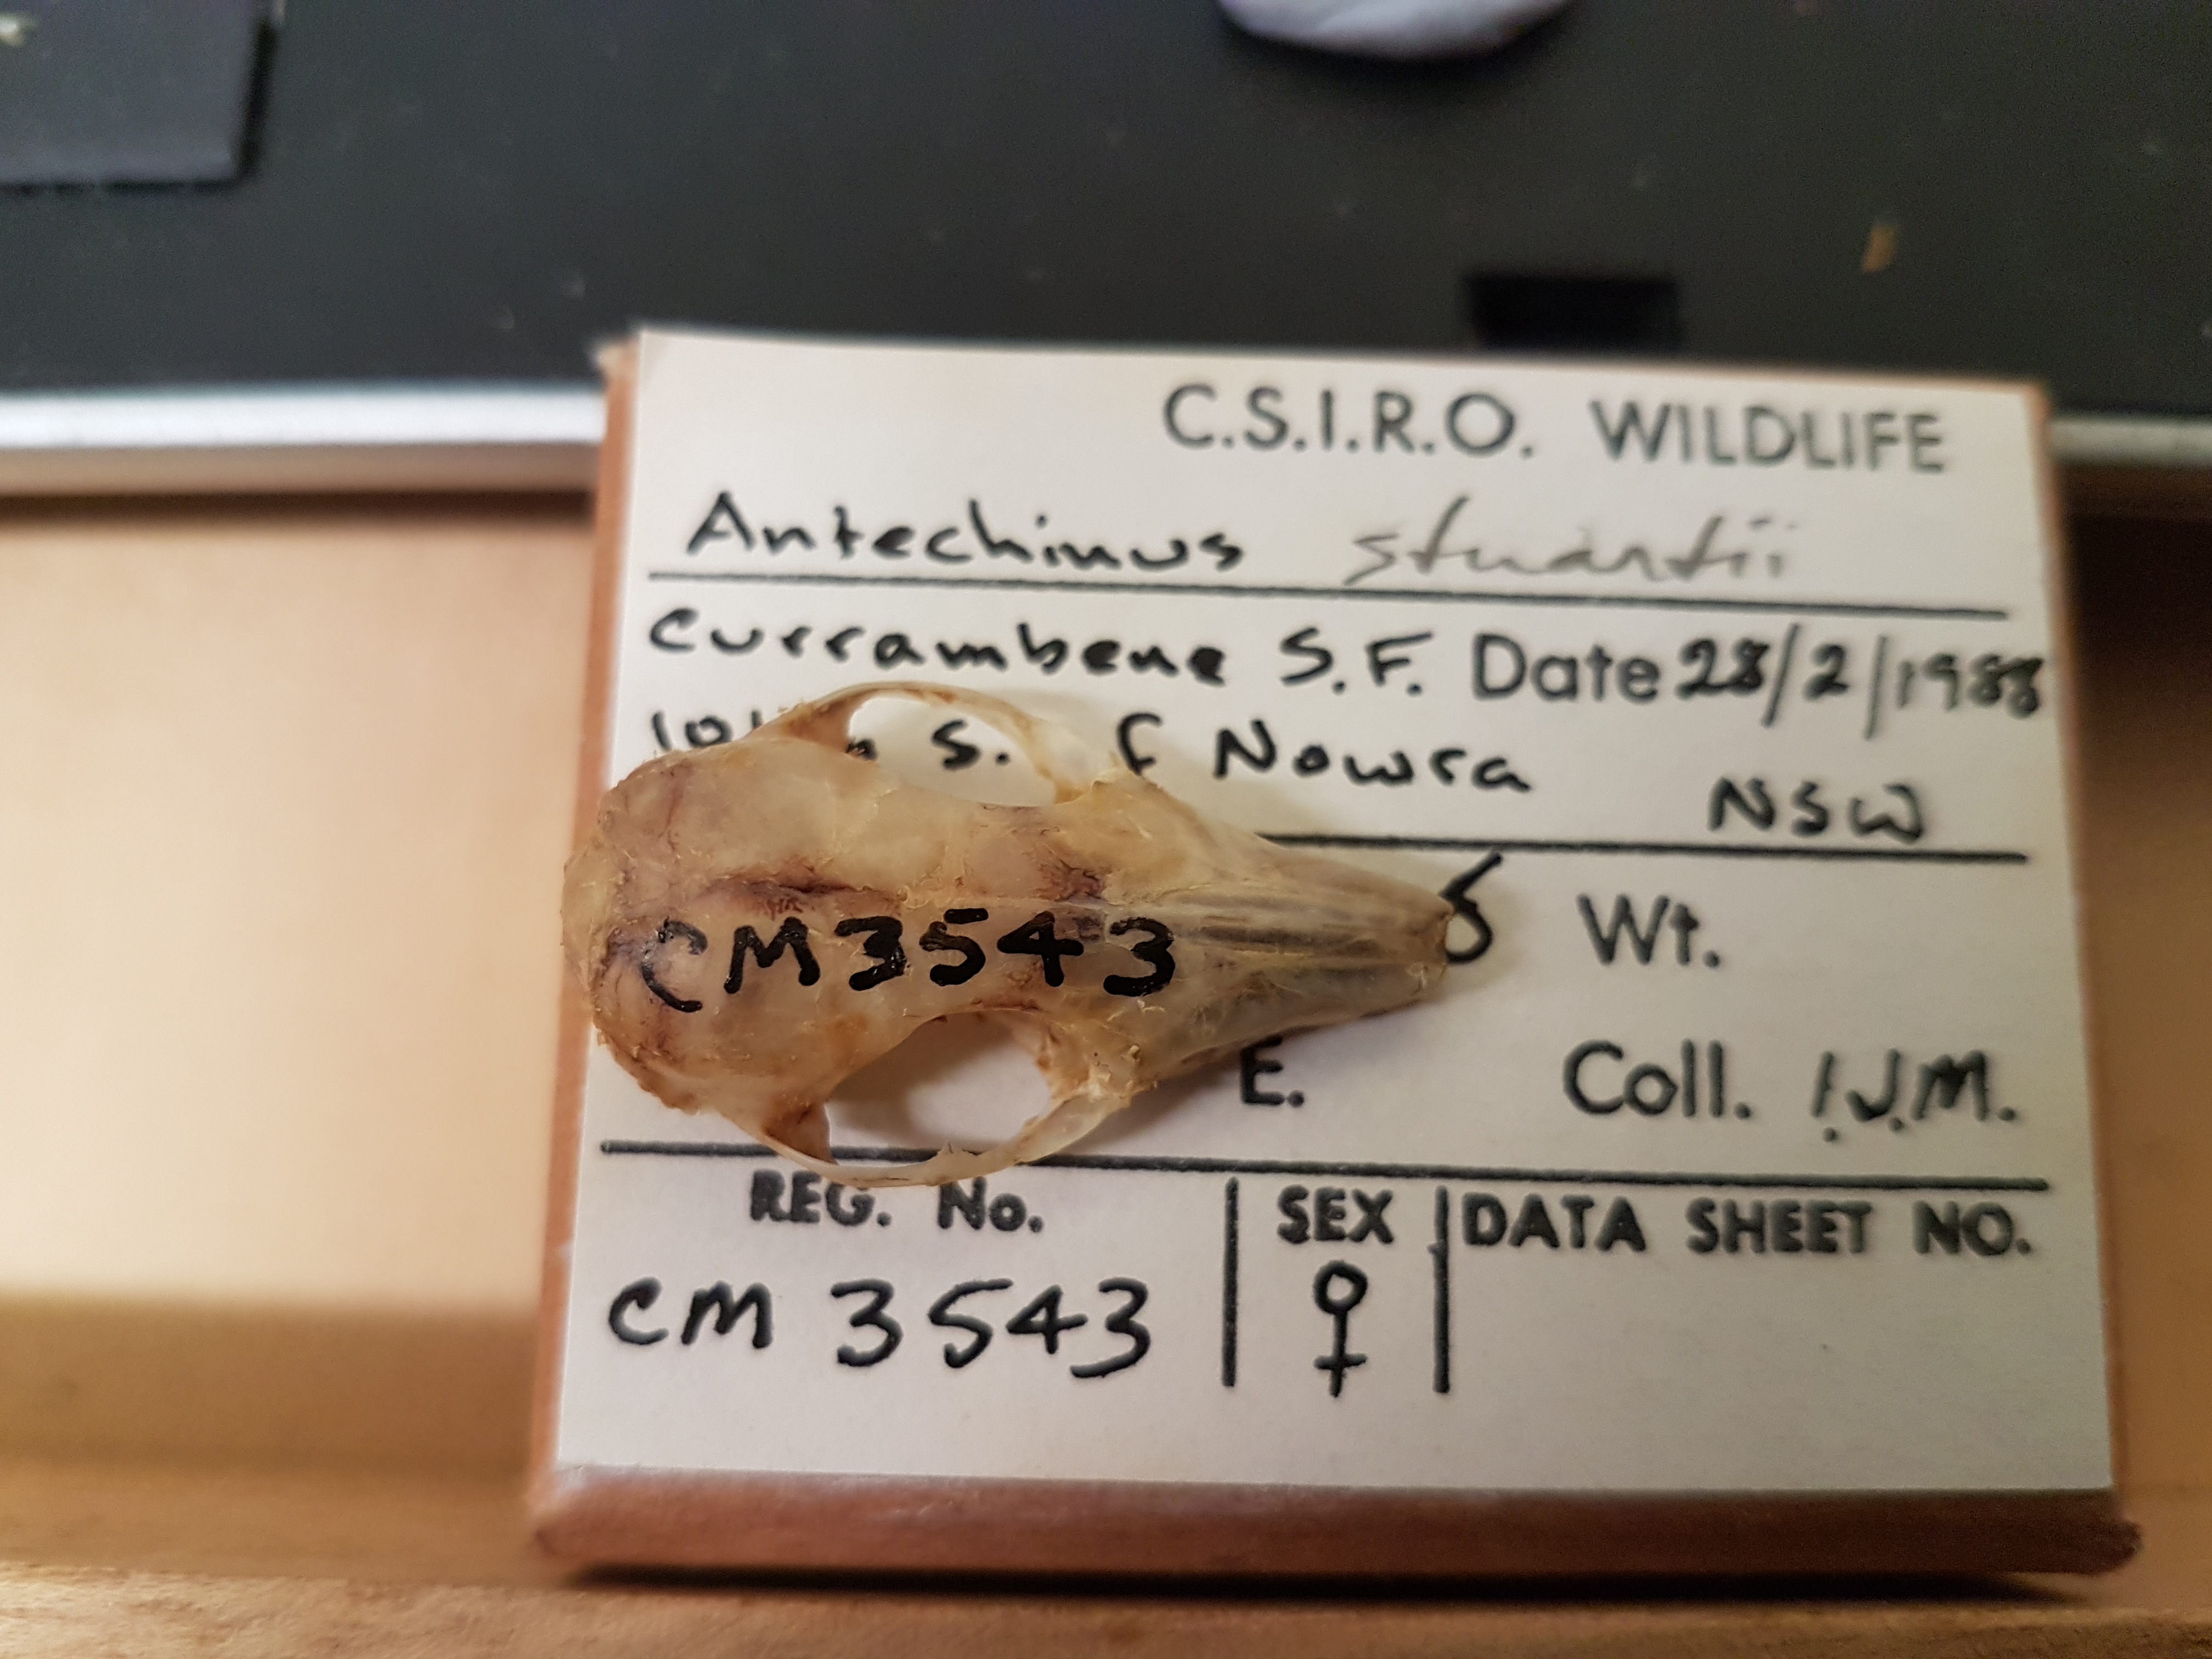 C.S.I.R.O. WILDLIFE
Antechinus stuartii
Currambene S.F. Date 28/2/1988
S. E Nowra NSW
Wt.
E. Coll. I.J.M.
REG. No. SEX DATA SHEET NO.
CM 3543 ♀
CM3543